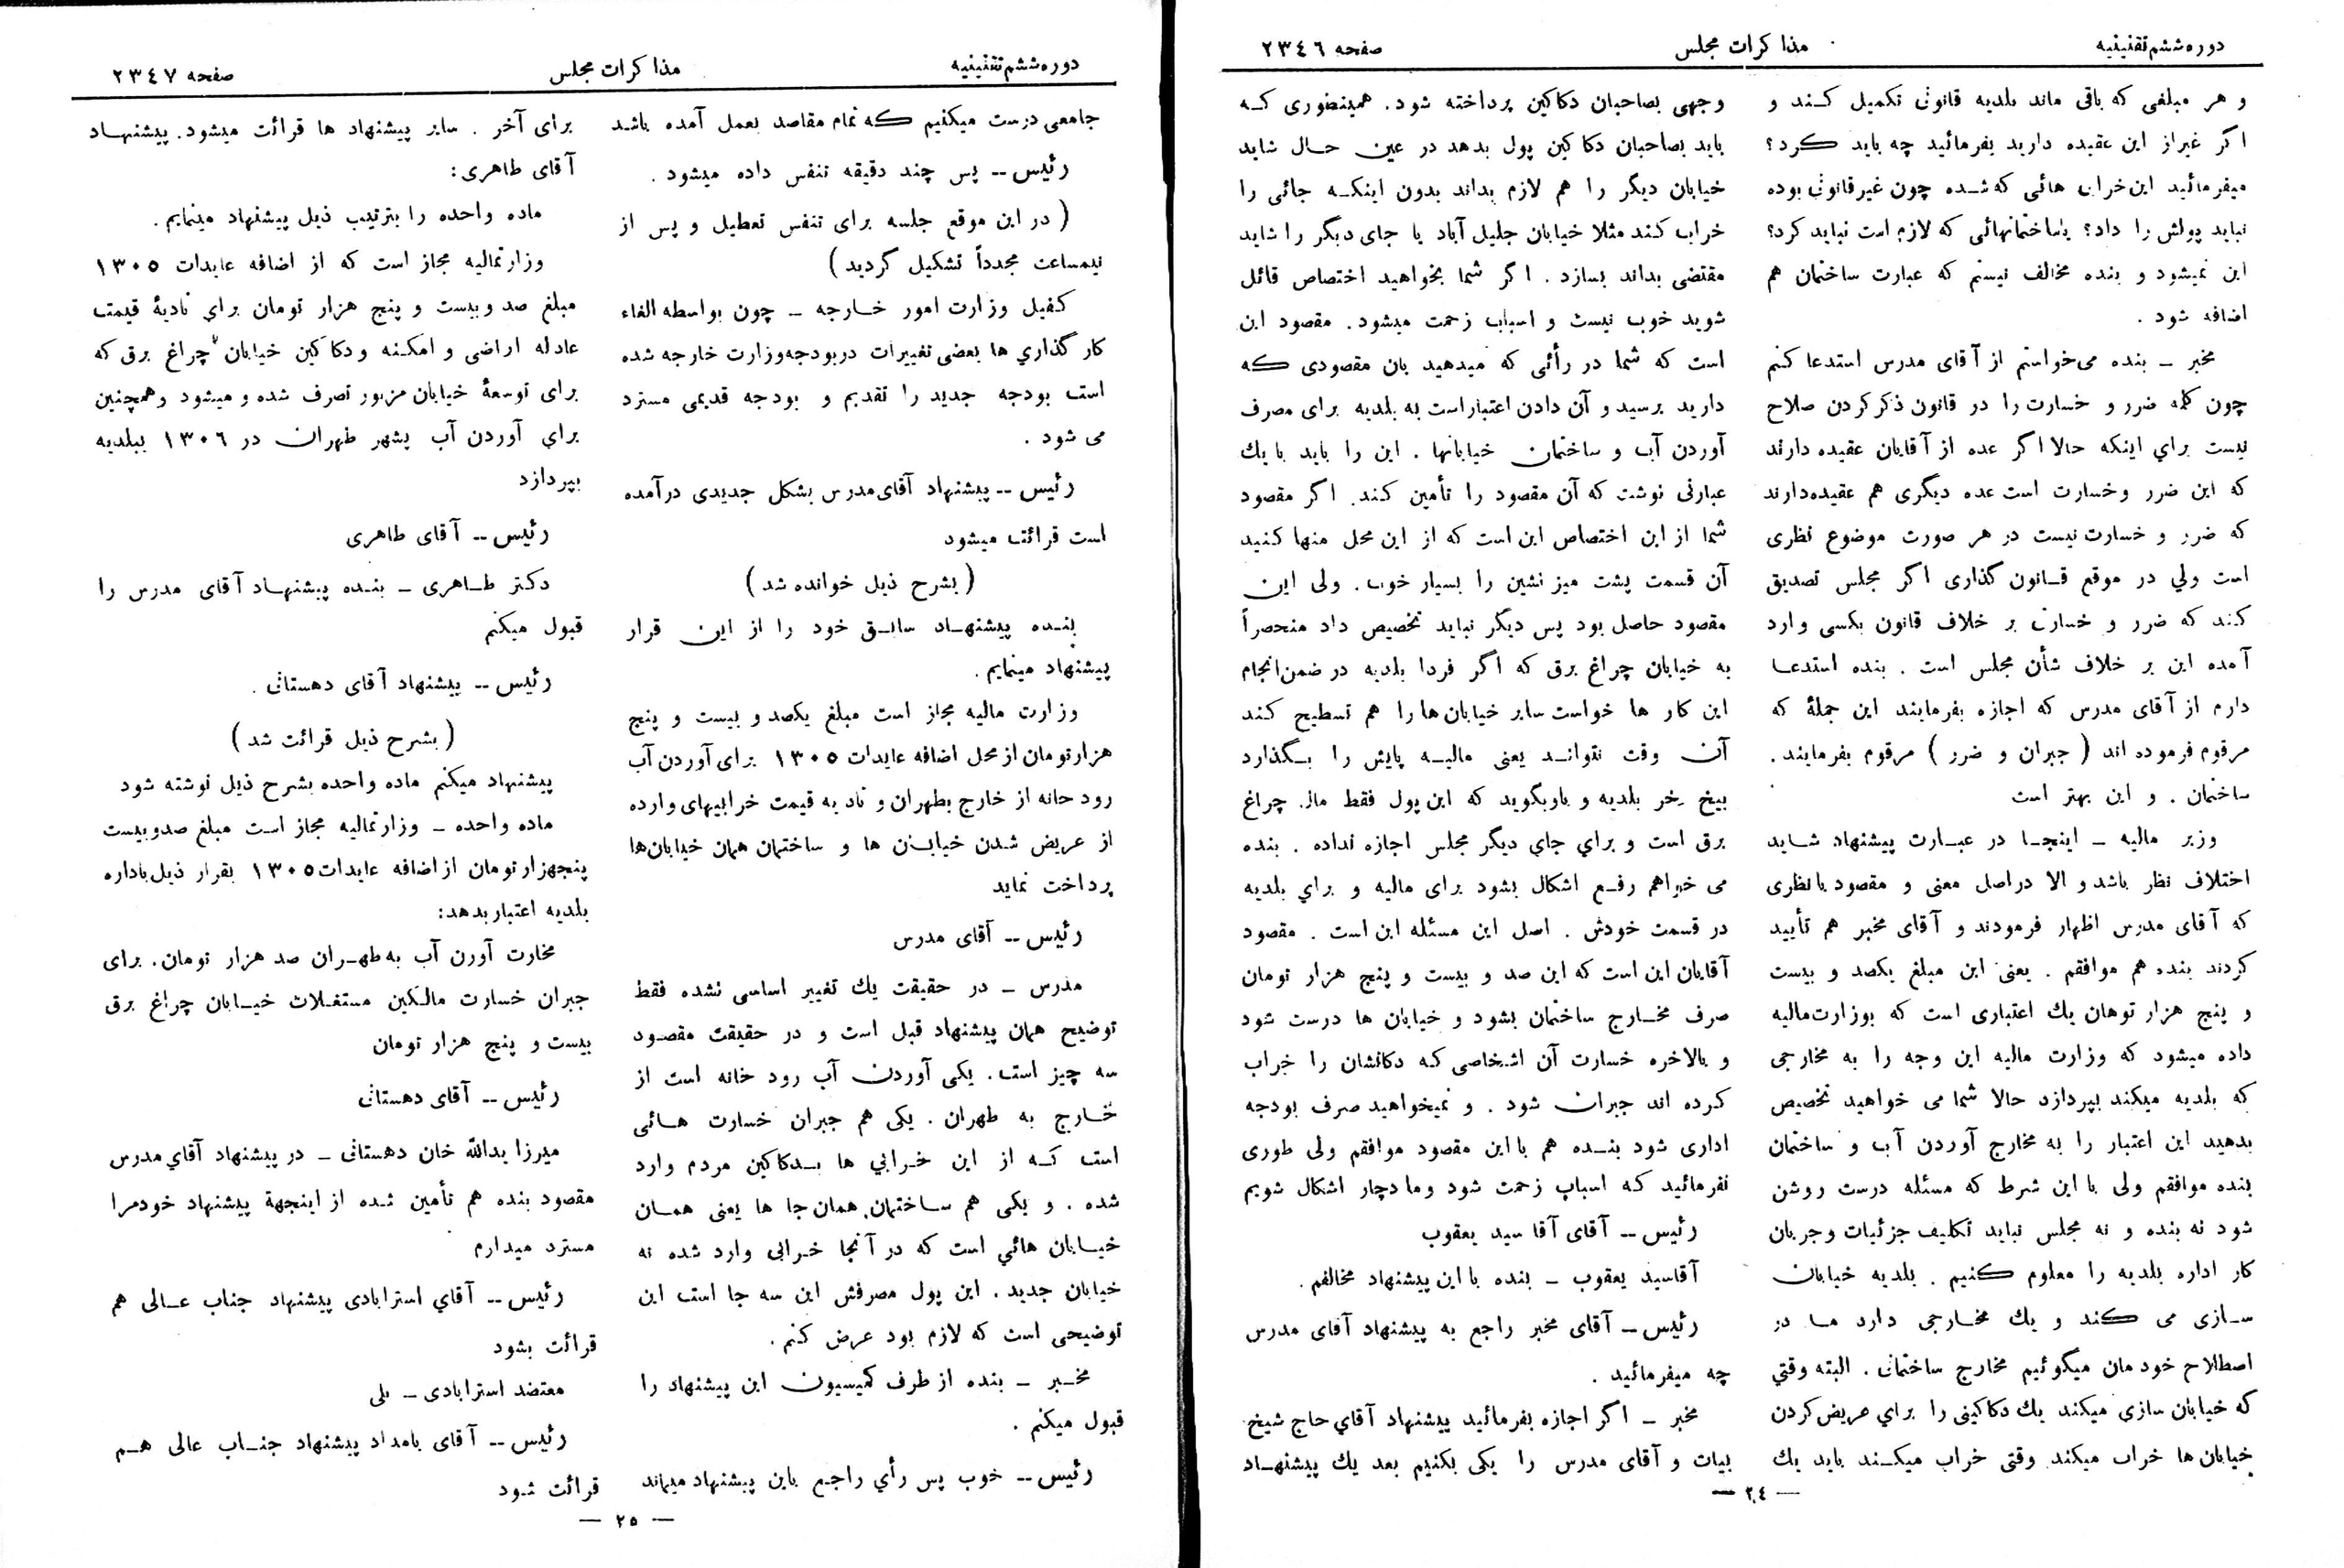 دوره ششم تقنینیه مذاکرات مجلس صفحه ۲۳٤٦
و هر مبلغی که باقی ماند بلدیه قانونی تکمیل کـند و
اگر غیراز این عقیده دارید بفرمائید چه باید کرد؟
میفرمائید این خرابی هائی که شـده چون غیرقانونی بوده
نباید پولش را داد؟ یا ساختمانهائی که لازم است نباید کرد؟
این نمیشود و بنده مخالف نیستم که عبارت ساختمان هم
اضافه شود .
مخبر ـ بنده می‌خواستم از آقای مدرس استدعا کنم
چون کلمه ضرر و خسارت را در قانون ذکر کردن صلاح
نیست برای اینکه حالا اگر عده از آقایان عقیده دارند
که این ضرر وخسارت است عده دیگری هم عقیده‌دارند
که ضرر و خسارت نیست در هر صورت موضوع نظری
است ولی در موقع قـانون گذاری اگر مجلس تصدیق
کـند که ضرر و خسارتی بر خلاف قانون بکسی وارد
آمده این بر خلاف شأن مجلس است . بنده استدعـا
دارم از آقای مدرس که اجازه بفرمایند این جملهٔ که
مرقوم فرموده اند ( جبران و ضرر ) مرقوم بفرمایند .
ساختمان . و این بهتر است
وزیر مالیه ـ اینجـا در عبـارت پیشنهاد شـاید
اختلاف نظر باشد و الا در اصل معنی و مقصود با نظری
که آقای مدرس اظهار فرمودند و آقای مخبر هم تأیید
کردند بنده هم موافقم . یعنی این مبلغ یکصد و بیست
و پنج هزار تومان یك اعتباری است که بوزارت‌مالیه
داده میشود که وزارت مالیه این وجه را به مخارجی
که بلدیه میکند بپردازد حالا شما می خواهید تخصیص
بدهید این اعتبار را به مخارج آوردن آب و ساختمان
بنده موافقم ولی با این شرط که مسئله درست روشن
شود نه بنده و نه مجلس نباید تکلیف جزئیات و جریان
کار اداره بلدیه را معلوم کنیم . بلدیه خیابان
سـازی می کند و یك مخـارجی دارد مـا در
اصطلاح خودمان میگوئیم مخارج ساختمانی . البته وقتی
که خیابان سازی میکند یك دکاکینی را برای عریض کردن
خیابان ها خراب میکند وقتی خراب میکـند باید یك
وجهی بصاحبان دکاکین پرداخته شود. همینطوری کـه
باید بصاحبان دکاکین پول بدهد در عین حـال شاید
خیابان دیگر را هم لازم بداند بدون اینکـه جائی را
خراب کـند مثلا خیابان جلیل آباد یا جای دیگر را شاید
مقتضی بداند بسازد . اگر شما بخواهید اختصاص قائل
شوید خوب نیست و اسباب زحمت میشود. مقصود این
است که شما در رأئی که میدهید بان مقصودی که
دارید برسید و آن دادن اعتبار است به بلدیه برای مصرف
آوردن آب و ساختمان خیابانها . این را باید با یك
عبارتی نوشت که آن مقصود را تأمین کـند. اگر مقصود
شما از این اختصاص این است که از این محل منها کـنید
آن قسمت پشت میز نشین را بسیار خوب. ولی این
مقصود حاصل بود پس دیگر نباید تخصیص داد منحصراً
به خیابان چراغ برق که اگر فردا بلدیه در ضمن انجام
این کار ها خواست سایر خیابان‌ها را هم تسطیح کـند
آن وقت نتوانـد یعنی مالیـه پایش را بـگذارد
بیخ خر بلدیه و باو بگوید که این پول فقط مال چراغ
برق است و برای جای دیگر مجلس اجازه نداده . بنده
می خواهم رفـع اشکال بشود برای مالیه و برای بلدیه
در قسمت خودش . اصل این مسئله این است . مقصود
آقایان این است که این صد و بیست و پنج هزار تومان
صرف مخـارج ساختمان بشود و خیابان ها درست شود
و بالاخره خسارت آن اشخاصی که دکانشان را خراب
کرده اند جبران شود . و نمیخواهید صرف بودجه
اداری شود بنـده هم با این مقصود موافقم ولی طوری
نفرمائید که اسباب زحمت شود وما دچار اشکال شویم
رئیس ــ آقای آقا سید یعقوب
آقاسید یعقوب ـ بنده با این پیشنهاد مخالفم .
رئیس ــ آقای مخبر راجع به پیشنهاد آقای مدرس
چه میفرمائید .
مخبر ـ اگر اجازه بفرمائید پیشنهاد آقای حاج شیخ
بیات و آقای مدرس را یکی بکنیم بعد یك پیشنهـاد
— ۲٤ —
دوره ششم تقنینیه مذاکرات مجلس صفحه ۲۳٤۷
جامعی درست میکنیم که تمام مقاصد بعمل آمده باشد
رئیس ــ پس چند دقیقه تنفس داده میشود .
( در این موقع جلسه برای تنفس تعطیل و پس از
نیمساعت مجدداً تشکیل گردید )
کفیل وزارت امور خـارجه ـ چون بواسطه الغاء
کار گذاری ها بعضی تغییرات در بودجه وزارت خارجه شده
است بودجه جدید را تقدیم و بودجه قدیمی مسترد
می شود .
رئیس ــ پیشنهاد آقای مدرس بشکل جدیدی در آمده
است قرائت میشود
( بشرح ذیل خوانده شد )
بنـده پیشنهـاد سابـق خود را از این قرار
پیشنهاد مینمایم .
وزارت مالیه مجاز است مبلغ یکصد و بیست و پنج
هزار تومان از محل اضافه عایدات ۱۳۰٥ برای آوردن آب
رود خانه از خارج بطهران و تادیه قیمت خرابیهای وارده
از عریض شدن خیابـان ها و ساختمان همان خیابان‌ها
پرداخت نماید
رئیس ــ آقای مدرس
مدرس ـ در حقیقت یك تغییر اساسی نشده فقط
توضیح همان پیشنهاد قبل است و در حقیقت مقصـود
سه چیز است. یکی آوردن آب رود خانه است از
خـارج به طهران . یکی هم جبران خسارت هـائی
است کـه از این خـرابی ها بـدکاکین مردم وارد
شده . و یکی هم سـاختمان همان جا ها یعنی همـان
خیـابان هائی است که در آنجا خـرابی وارد شده نه
خیابان جدید . این پول مصرفش این سه جا است این
توضیحی است که لازم بود عرض کنم .
مخـبر ـ بنده از طرف کمیسیون این پیشنهاد را
قبول میکنم .
رئیس ــ خوب پس رأی راجـع باین پیشنهاد میماند
برای آخر . سایر پیشنهاد ها قرائت میشود. پیشنهـاد
آقای طاهری:
ماده واحده را بترتیب ذیل پیشنهاد مینمایم.
وزارتمالیه مجاز است که از اضافه عایدات ۱۳۰٥
مبلغ صد و بیست و پنج هزار تومان برای تادیهٔ قیمت
عادله اراضی و امکـنه و دکاکین خیابان چراغ برق که
برای توسعهٔ خیابان مزبور تصرف شده و میشود و همچنین
برای آوردن آب بشهر طهران در ۱۳۰٦ ببلدیه
بپردازد
رئیس ــ آقای طاهری
دکتر طـاهری ـ بنـده پیشنهـاد آقای مدرس را
قبول میکنم
رئیس ــ پیشنهاد آقای دهستانی .
( بشرح ذیل قرائت شد )
پیشنهاد میکنم ماده واحده بشرح ذیل نوشته شود
ماده واحده ـ وزارتمالیه مجاز است مبلغ صدوبیست
پنجهزار تومان از اضافه عایدات۱۳۰٥ بقرار ذیل باداره
بلدیه اعتبار بدهد:
مخارت آورن آب به طهـران صد هزار تومان. برای
جبران خسارت مالکین مستغـلات خیـابان چراغ برق
بیست و پنج هزار تومان
رئیس ــ آقای دهستانی
میرزا یدالله خان دهستانی ـ در پیشنهاد آقای مدرس
مقصود بنده هم تأمین شده از اینجهة پیشنهاد خودمرا
مسترد میدارم
رئیس ــ آقای استرابادی پیشنهاد جناب عـالی هم
قرائت بشود
معتضد استرابادی ـ بلی
رئیس ــ آقای بامداد پیشنهاد جنـاب عالی هـم
قرائت شود
— ۲٥ —